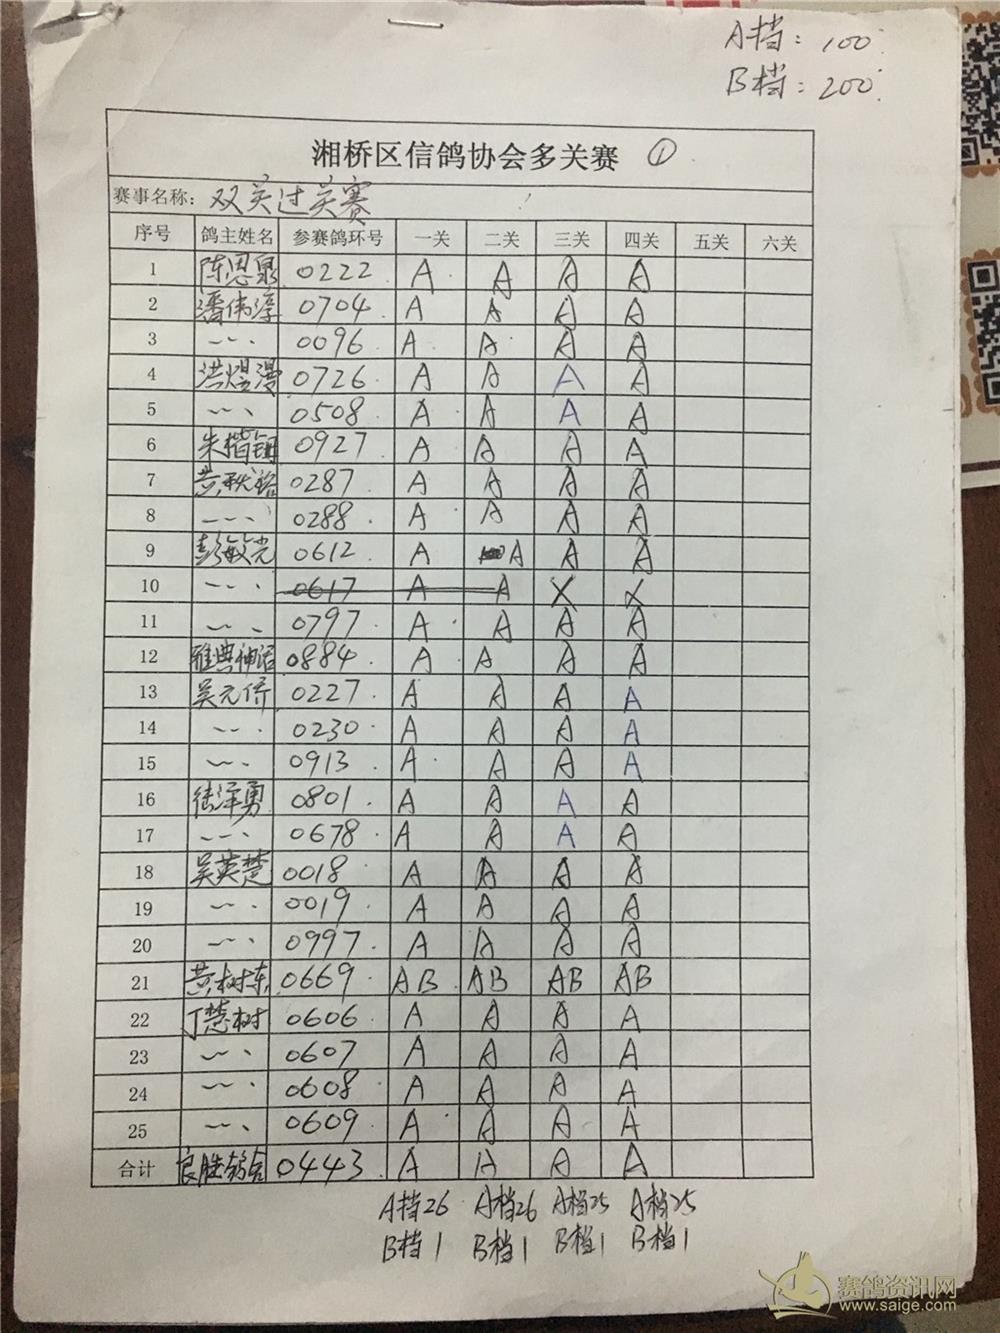 A档：100
B档：200
湘桥区信鸽协会多关赛 ①
赛事名称：双关过关赛
序号 鸽主姓名 参赛鸽环号 一关 二关 三关 四关 五关 六关
1 陈恩泉 0222 A A A A
2 潘伟淳 0704 A A A A
3 0096 A A A A
4 洪煜漫 0726 A A A A
5 0508 A A A A
6 朱楷钿 0927 A A A A
7 黄秋裕 0287 A A A A
8 0288 A A A A
9 彭敏光 0612 A A A A
10 0617 A A X X
11 0797 A A A A
12 雅典神话 0884 A A A A
13 吴元侨 0227 A A A A
14 0230 A A A A
15 0913 A A A A
16 陆泽勇 0801 A A A A
17 0678 A A A A
18 吴英楚 0018 A A A A
19 0019 A A A A
20 0997 A A A A
21 黄树东 0669 AB AB AB AB
22 丁慧树 0606 A A A A
23 0607 A A A A
24 0608 A A A A
25 0609 A A A A
合计 良胜鸽舍 0443 A A A A
A档26 A档26 A档25 A档25
B档1 B档1 B档1 B档1
赛鸽资讯网
www.saige.com